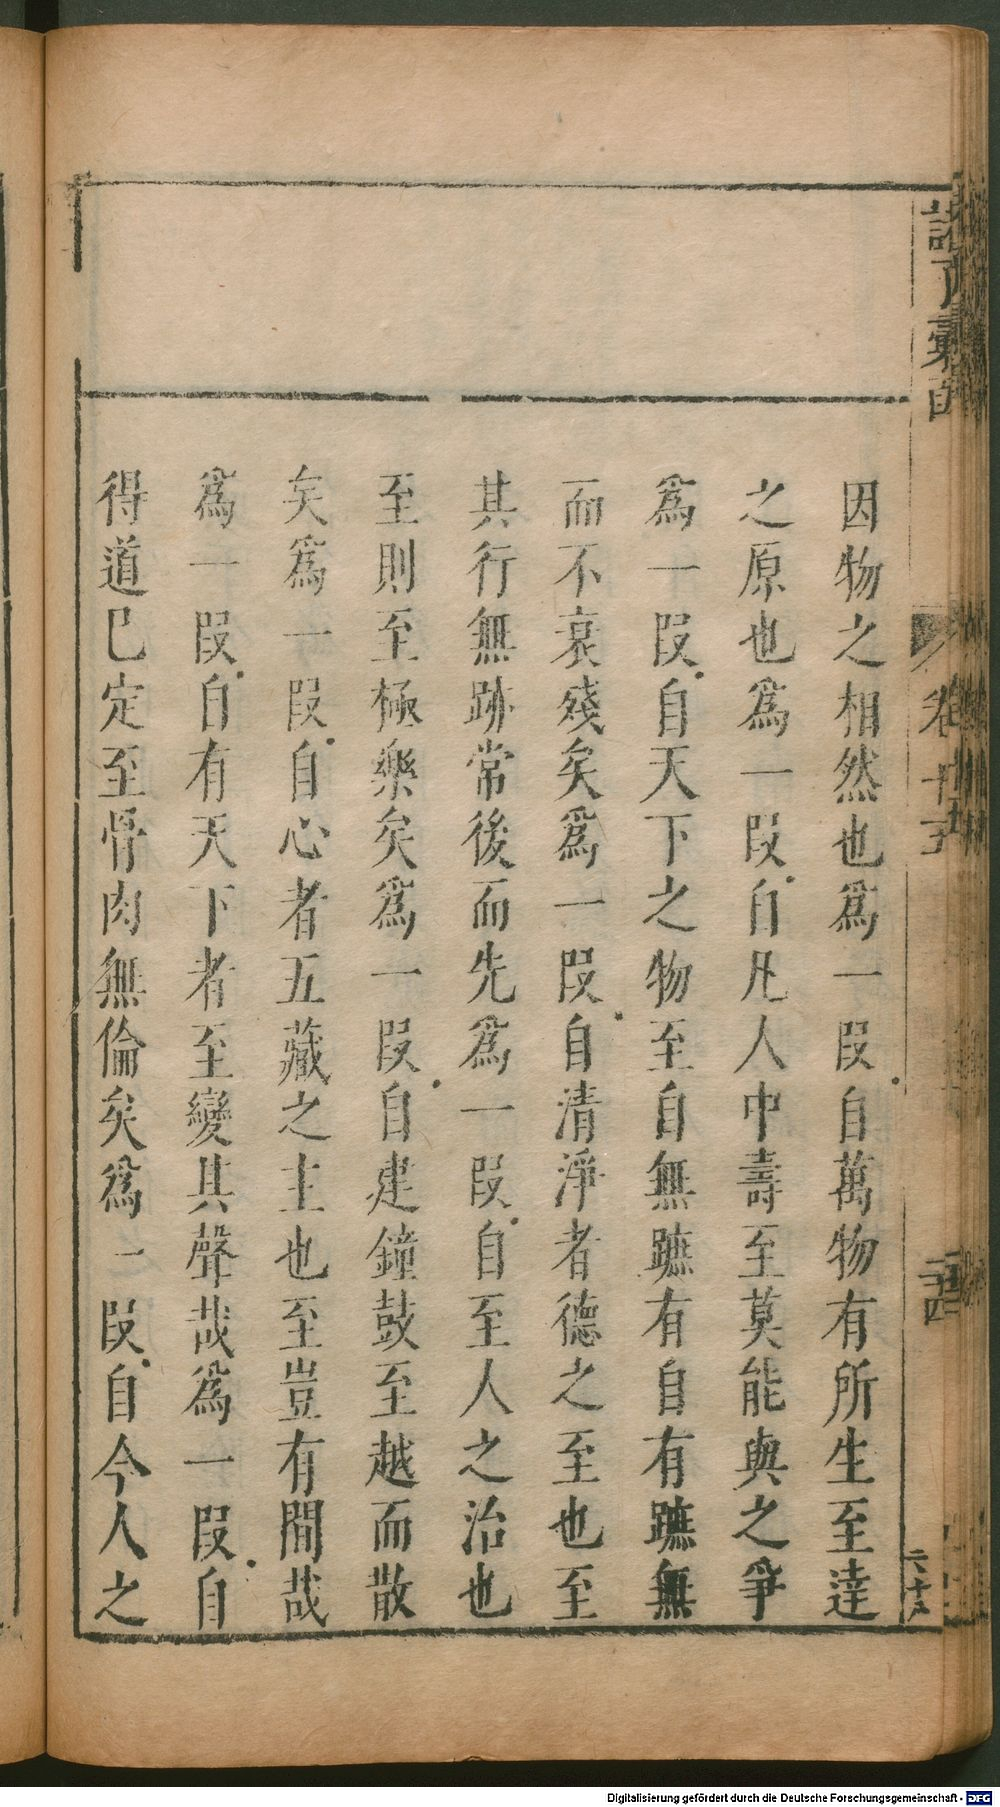 因物之相然也爲一段自萬物有所生至達
之原也爲一段自凡人中壽至莫能與之爭
爲一段自天下之物至自無蹠有自有蹠無
而不衰殘矣爲一段自清淨者德之至也至
其行無跡常後而先爲一段自至人之治也
至則至極樂矣爲一段自建鐘鼓至越而散
矣爲一段自心者五藏之主也至豈有間哉
爲一段自有天下者至變其聲哉爲一段自
得道已定至骨肉無倫矣爲一段自今人之
卷十五
Digitalisierung gefördert durch die Deutsche Forschungsgemeinschaft - DFG